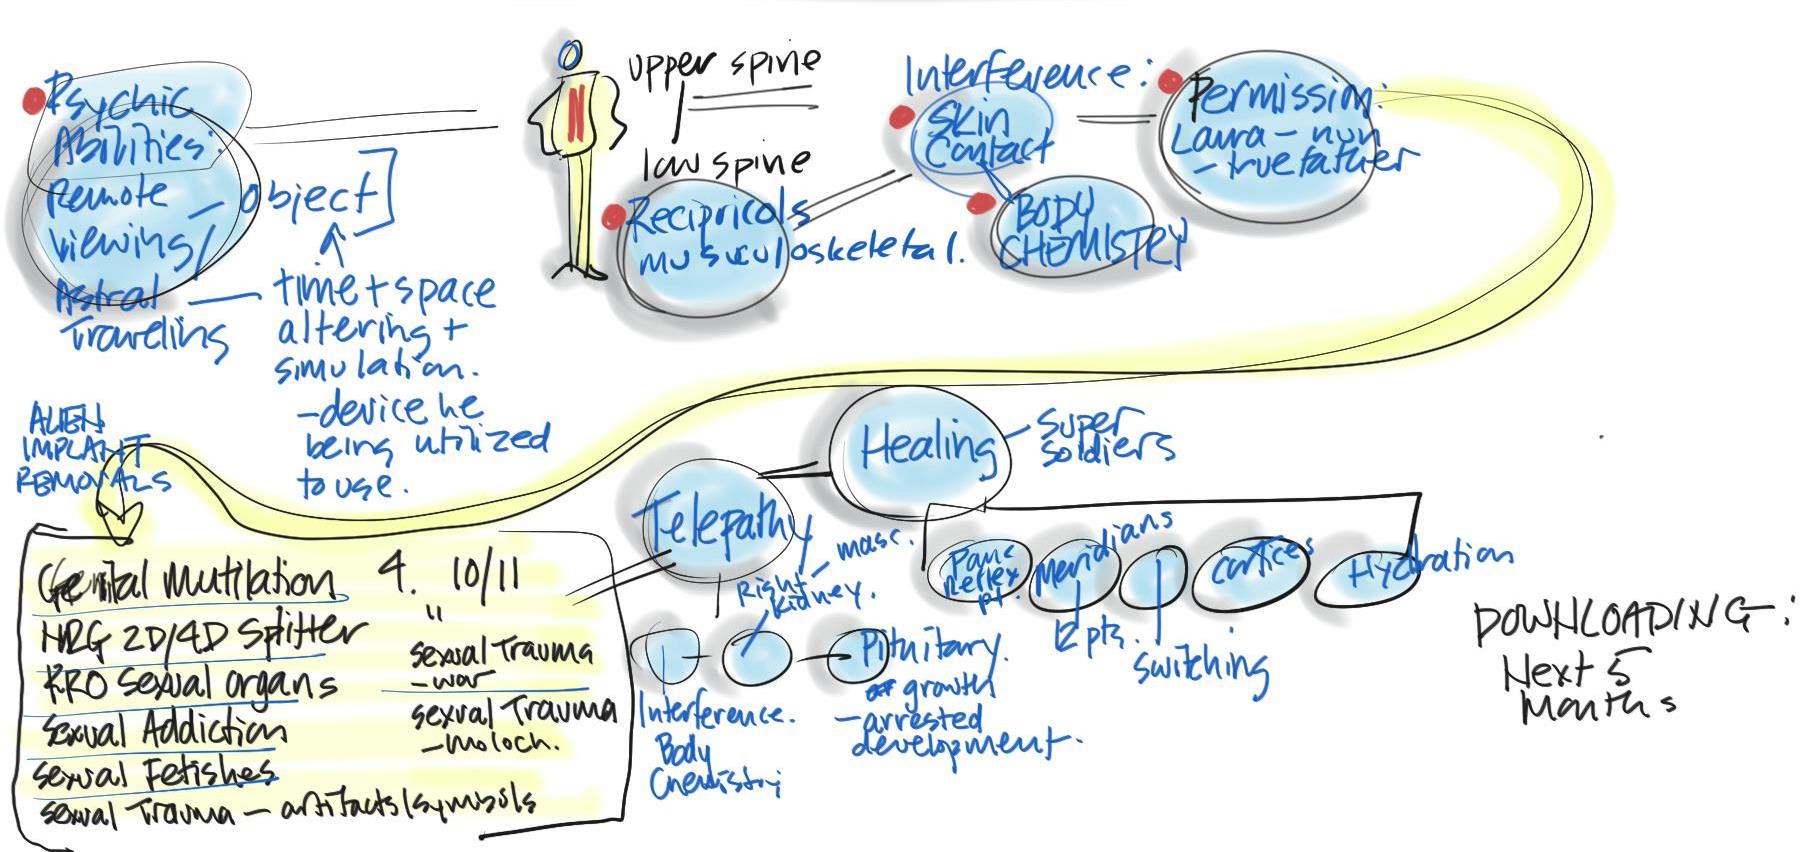 Psychic
Abilities:
Remote
Viewing/
Astral
Traveling
- object
time + space
altering +
simulation.
- device he
being utilized
to use.
upper spine
low spine
Recipricols
musculoskeletal.
Interference:
Skin
Contact
BODY
CHEMISTRY
Permission:
Laura - non
- true father
ALIEN
IMPLANT
REMOVALS
Genital Mutilation 4. 10/11
NRG 2D/4D Splitter "
RRO Sexual organs
Sexual Addiction
Sexual Fetishes
Sexual Trauma - artifacts/symbols
Sexual Trauma
- war
Sexual Trauma
- Moloch.
Telepathy
Right - masc.
Kidney.
Interference.
Body
Chemistry
Pituitary.
growth
- arrested
development.
Healing
- Super
Soldiers
Reflex
pt.
Meridians
12 pts.
Switching
Cortices
Hydration
DOWNLOADING:
Next 5
Months